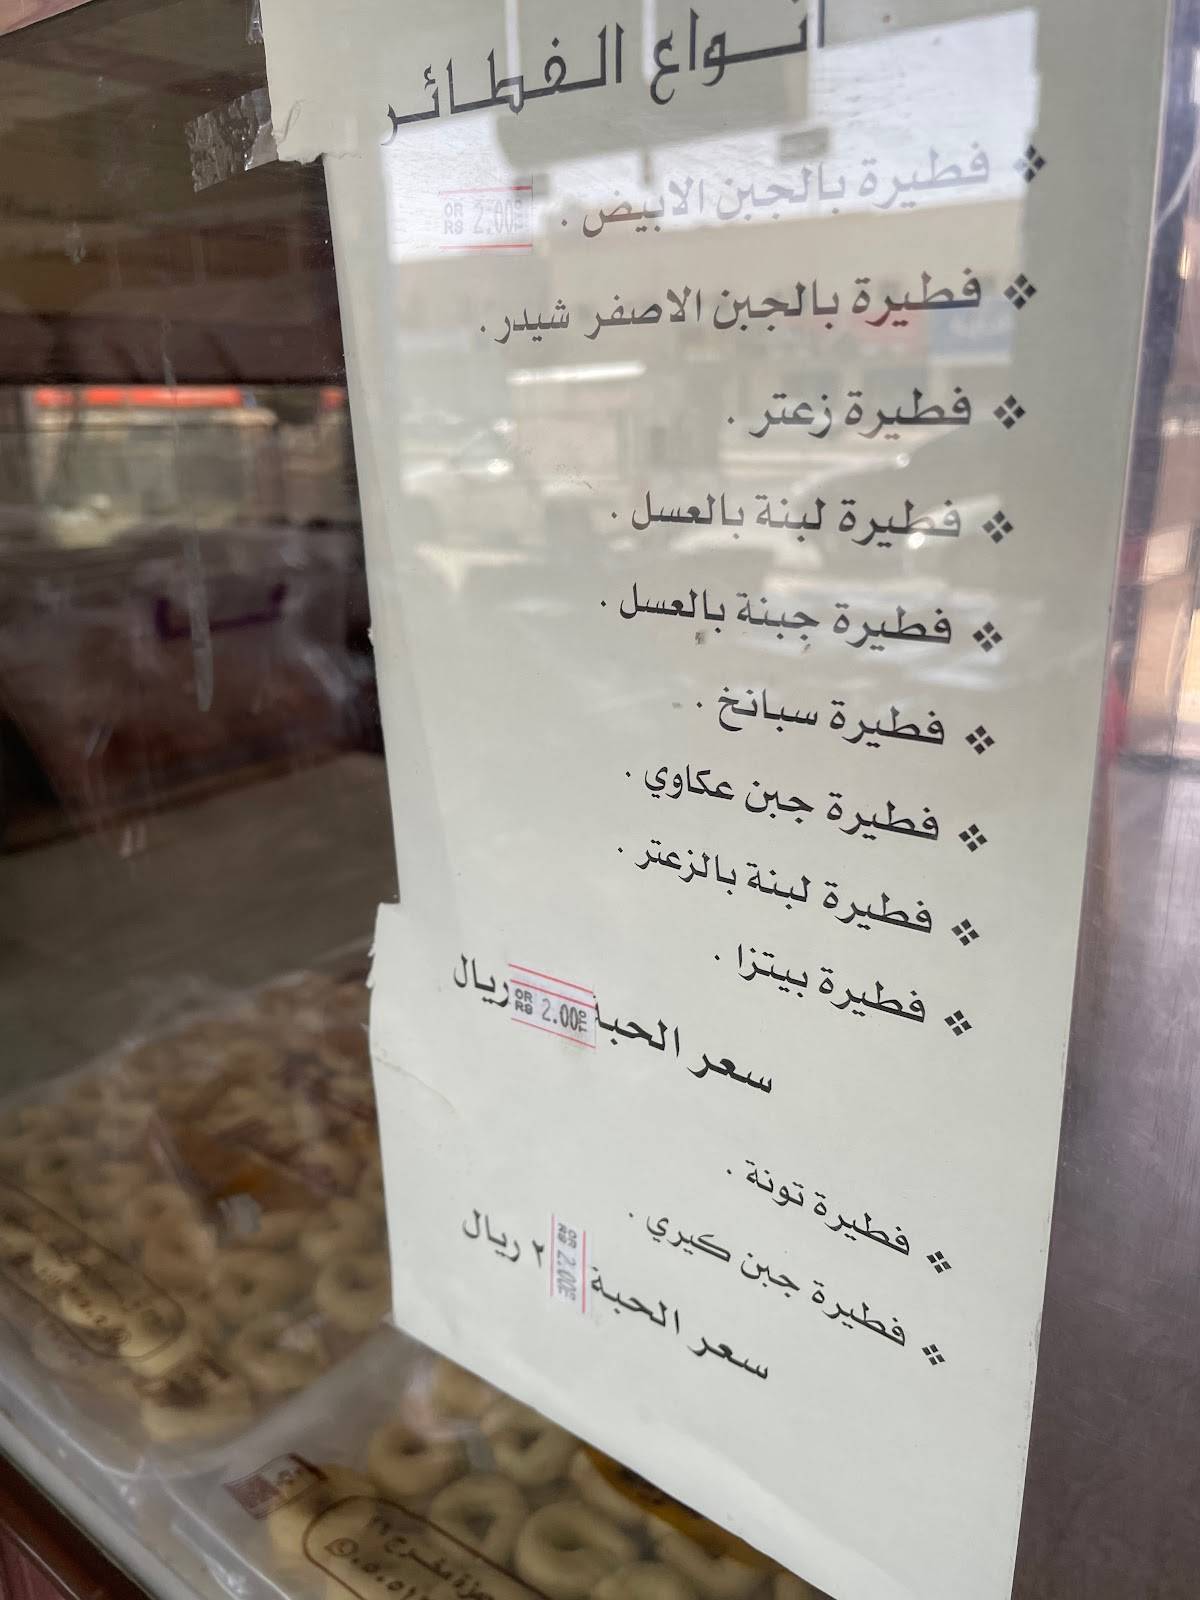 أنواع الفطائر
❖ فطيرة بالجبن الابيض . 2.00
❖ فطيرة بالجبن الاصفر شيدر .
❖ فطيرة زعتر .
❖ فطيرة لبنة بالعسل .
❖ فطيرة جبنة بالعسل .
❖ فطيرة سبانخ .
❖ فطيرة جبن عكاوي .
❖ فطيرة لبنة بالزعتر .
❖ فطيرة بيتزا .
سعر الحبة 2.00 ريال
❖ فطيرة تونة .
❖ فطيرة جبن كيري .
سعر الحبة 2.00 ٢ ريال